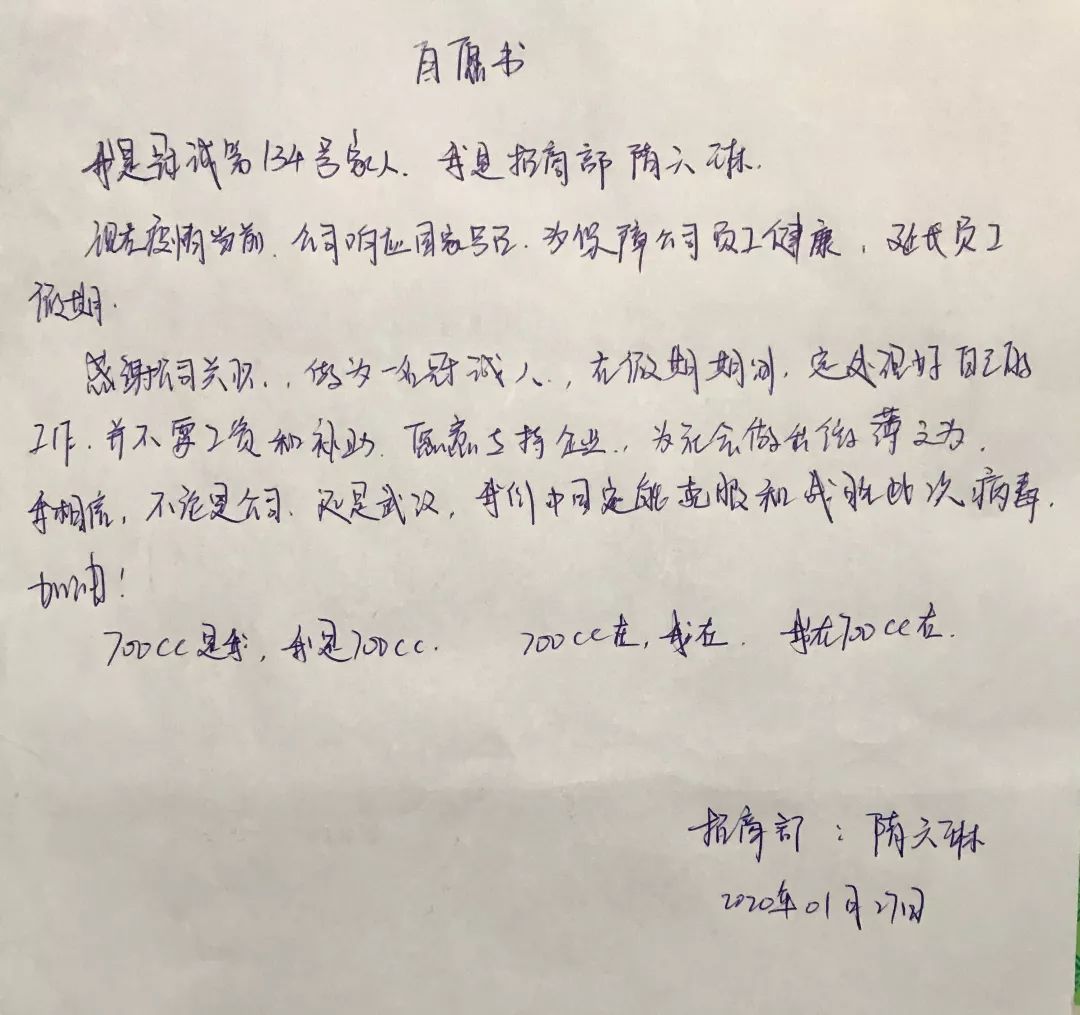 自愿书
我是冠诚第134号家人. 我是招商部 隋六琳.
现在疫情当前. 公司响应国家号召. 为保障公司员工健康, 延长员工
假期.
感谢公司关心.. 做为一名冠诚人.., 在假期期间, 定处理好自己的
工作. 并不要工资和补助. 愿意支持企业.. 为社会做出微薄之为.
我相信, 不论是公司. 还是武汉, 我们中国定能克服和战胜此次病毒.
加油!
700cc是我, 我是700cc. 700cc在, 我在. 我在700cc在.
招商部: 隋六琳
2020年01月27日